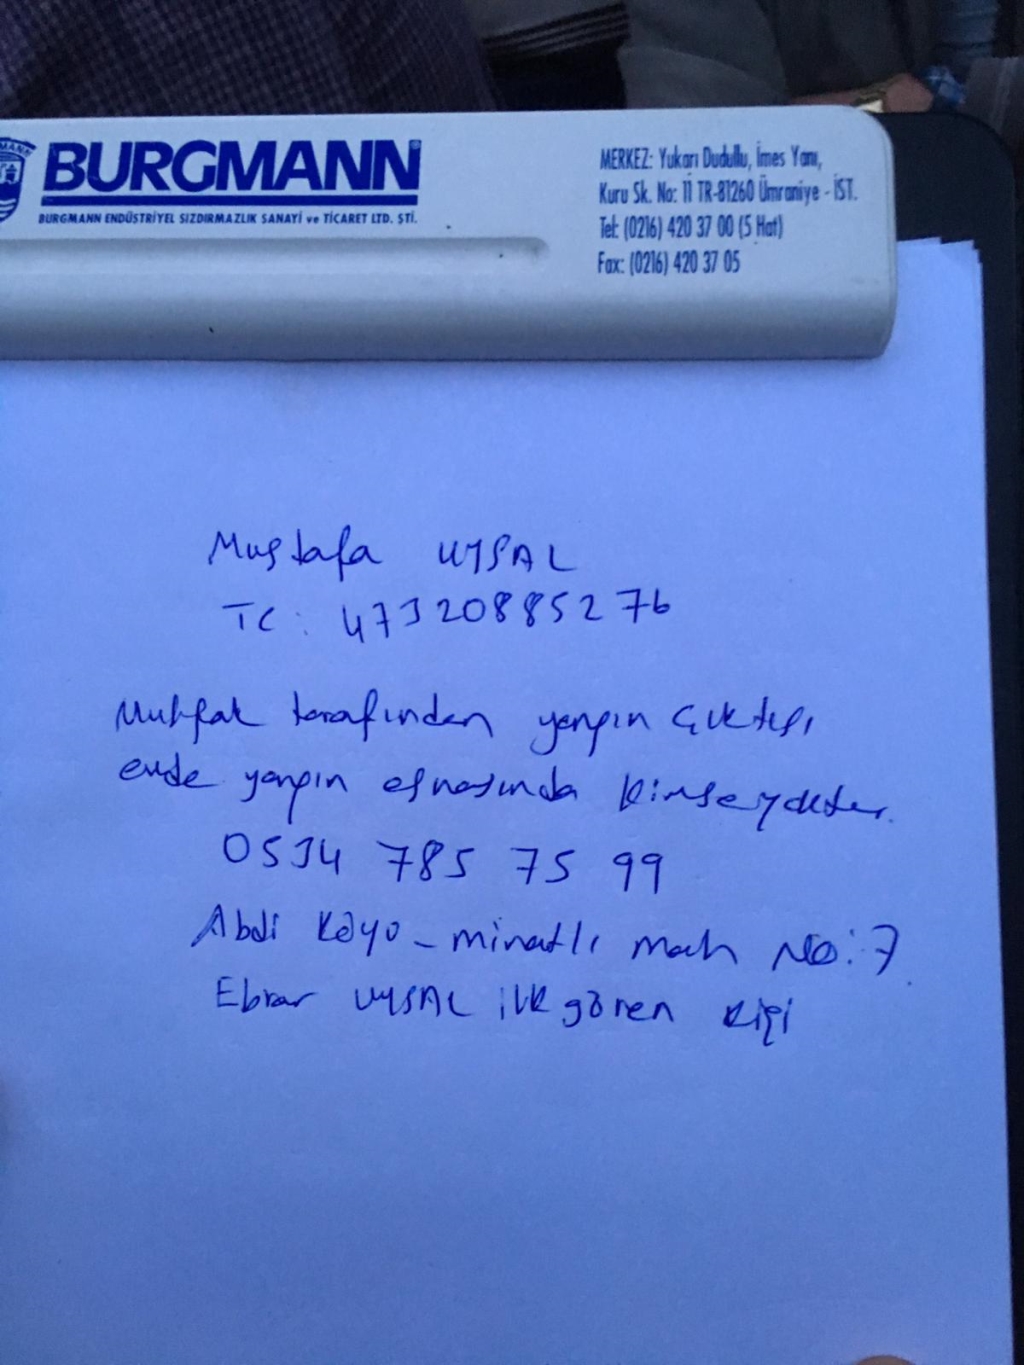 BURGMANN
BURGMANN ENDÜSTRİYEL SIZDIRMAZLIK SANAYİ ve TİCARET LTD. ŞTİ.
MERKEZ: Yukarı Dudullu, İmes Yanı,
Kuru Sk. No: 11 TR-81260 Ümraniye - İST.
Tel: (0216) 420 37 00 (5 Hat)
Fax: (0216) 420 37 05
Mustafa UYSAL
TC: 47320885276
Mutfak tarafından yangın çıktığı
evde yangın esnasında kimse yoktur.
0534 785 75 99
Abdi Köyü - minatlı mah No: 7
Ebrar UYSAL ilk gören kişi